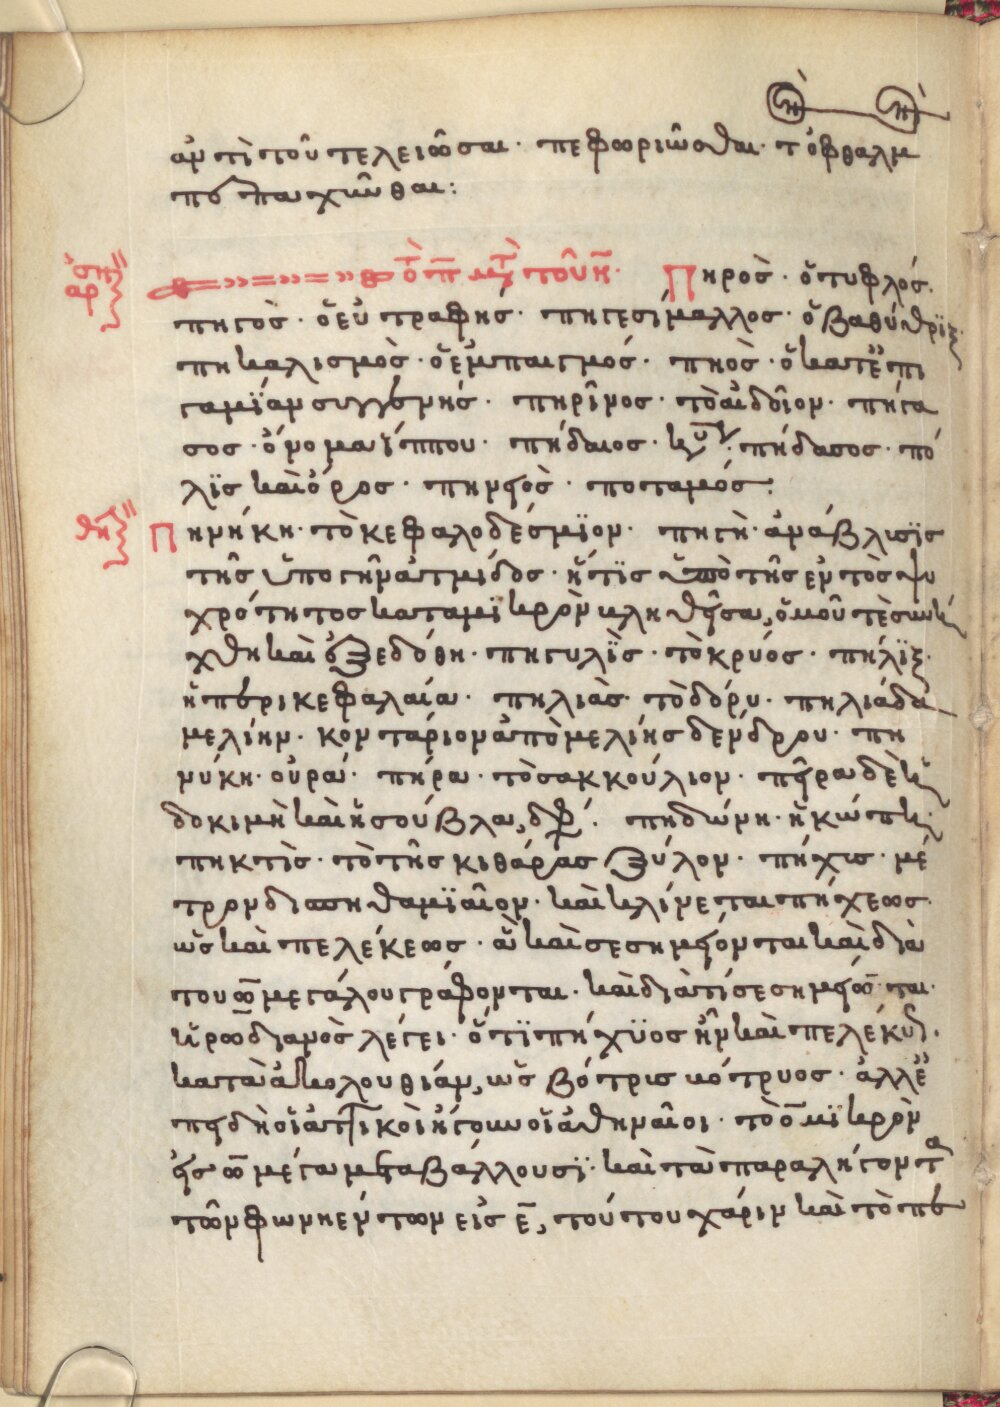 ἀντὶ τοῦ τελειῶσαι· πεφωριᾶσθαι· τ ὀφθαλμ
παχῦνθαι:
τὸ π μετὰ τοῦ η· Πηρὸς· ὁ τυφλός·
πηγὸς· ὁ εὐτραφής· πηγεσίμαλλος· ὁ βαθύθριξ
πηκαλισμὸς· ὁ ἐμπαιγμός· πηὸς· ὁ κατ ἐπι
γαμίαν συγγενής· πηρῖνος· τὸ αἰδοῖον· πήγα
σος· ὄνομα ἵππου· πήδαιος· κύριον· πήδασος· πό
λϊς καὶ ὄρος· πηνειὸς· ποταμός:
Πηνήκη· τὸ κεφαλοδέσμϊον· πηγὴ· ἀνάβλισϊς
τῆς ὑπὸ γῆν ἀτμίδος· ἥτϊς ὑπὸ τῆς ἐντὸς ψυ
χρότητος καταμϊκρὸν κληθεῖσα, ὁμοῦ τὲ σωκ
χθη καὶ ἐξεδόθη· πηγυλὶς· τὸ κρύος· πήλϊξ·
ἡ περικεφαλαία· πηλιὰς· τὸ δόρυ· πηλιάδα
μελίην· κονταριον ἀπὸ μελίης δένδρου· πη
νύκη· οὐρά· πήρα· τὸ σακκούλιον· πεῖρα δὲ ἡ
δοκιμὴ καὶ ἡ σούβλα, δι· πηδώνη· ἡ κώπη·
πηκτὶς· τὸ τῆς κιθάρας ξύλον· πήχις· μέ
τρον δισπηθαμϊαῖον· καὶ κλίνεται πήχεως·
ὡς καὶ πελέκεως· ἃ καὶ σεσημείονται καὶ διὰ
του ω μεγάλου γράφονται· καὶ διὰ τί σεσημείωται·
ἡρωδιανὸς λέγει· ὅτϊ πήχϋος ἦν καὶ πελέκυος·
κατὰ ἀκολουθίαν, ὡς βότρις βότρυος· ἀλλ ἐ
πειδὴ οἱ ἀττικοὶ ἤγουν οἱ ἀθηναῖοι· τὸ ο μϊκρὸν
εἰς ω μέγα μεταβάλλουσϊ· καὶ τὰ παραλήγοντα
τῶν φωνηέντων εἰς ε, τούτου χάριν καὶ τὸ πε